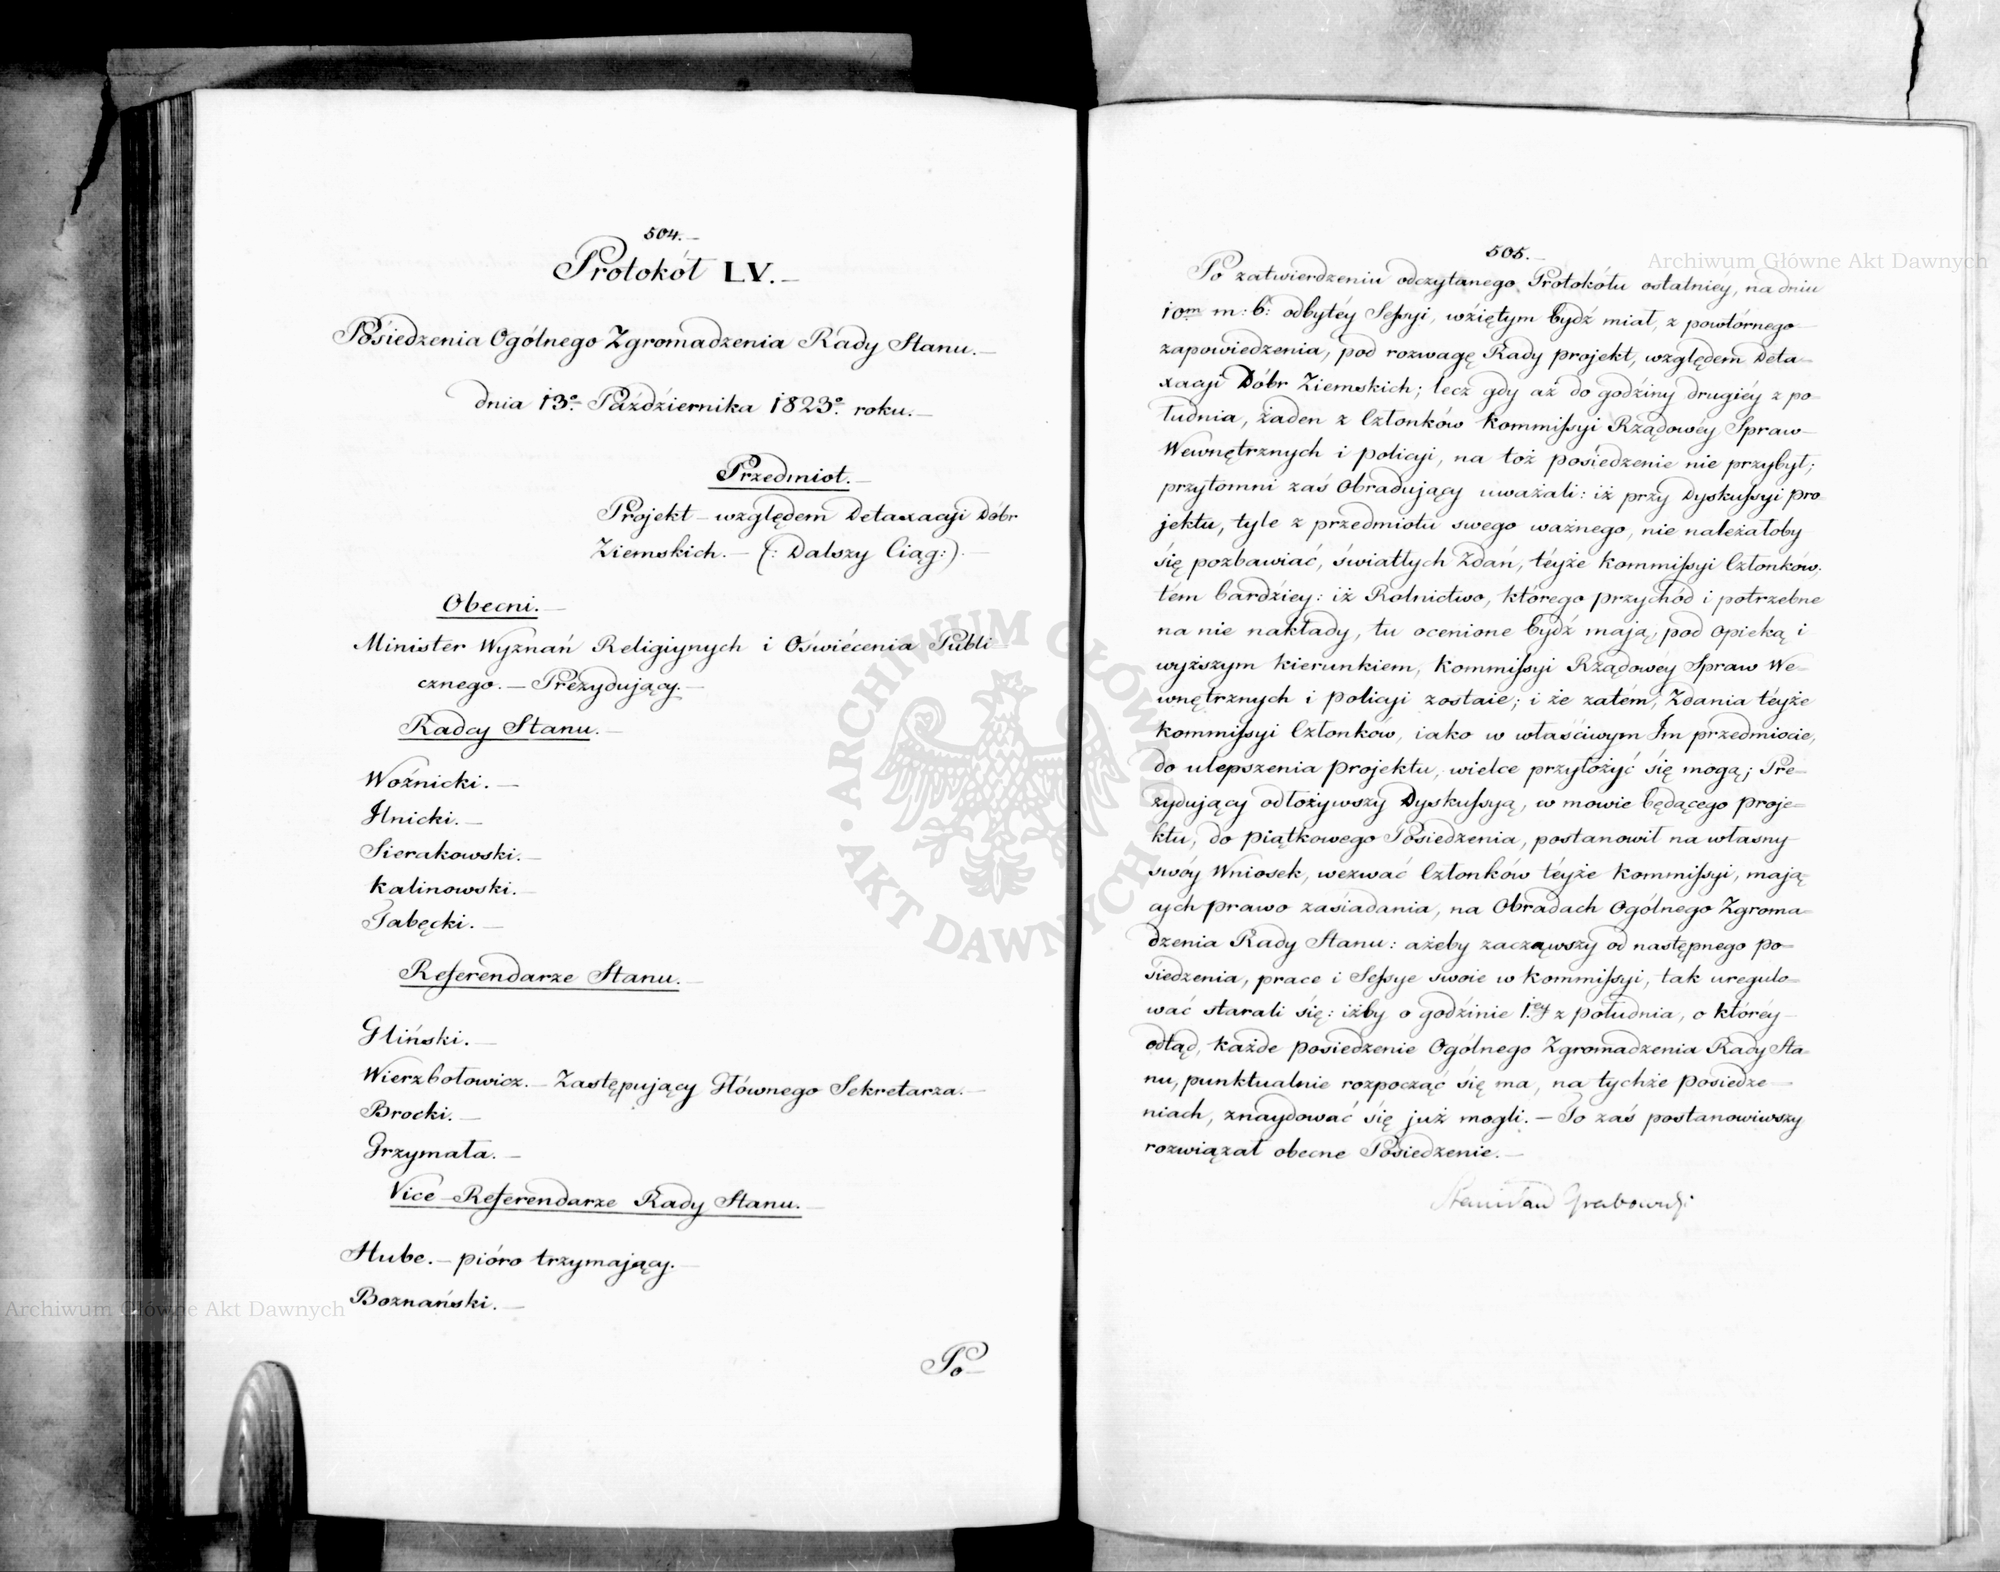 504.—
Protokół LV.—
Posiedzenia Ogólnego Zgromadzenia Rady Stanu.—
dnia 13º Października 1823º roku.—
Przedmiot.—
Projekt względem Detaxacyi Dóbr
Ziemskich.— (: Dalszy Ciąg:).—
Obecni.—
Minister Wyznań Religiynych i Oświécenia Publi
cznego.— Prezydujący.—
Radcy Stanu.—
Woźnicki.—
Ilnicki.—
Sierakowski.—
Kalinowski.—
Tabęcki.—
Referendarze Stanu.—
Gliński.—
Wierzbołowicz.— Zastępujący Głównego Sekretarza.—
Brocki.—
Grzymała.—
Vice Referendarze Rady Stanu.—
Hube.— pióro trzymający.—
Boznański.—
Po—
505.—
Po zatwierdzeniu odczytanego Protokółu ostatniéy, na dniu
10m m: b: odbytéy Sessyi, wziętym bydź miał, z powtórnego
zapowiedzenia, pod rozwagę Rady projekt, względem Deta=
xacyi Dóbr Ziemskich; lecz gdy aż do godziny drugiéy z po=
łudnia, żaden z Członków Kommissyi Rządowéy Spraw
Wewnętrznych i policyi, na toż posiedzenie nie przybył;
przytomni zaś Obradujący uważali: iż przy Dyskussyi pro=
jektu, tyle z przedmiotu swego ważnego, nie należałoby
się pozbawiać, światłych Zdań, téyże Kommissyi Członków.
tém bardziey: iż Rolnictwo, którego przychód i potrzebne
na nie nakłady, tu ocenione bydź mają, pod opieką i
wyższym kierunkiem, Kommissyi Rządowéy Spraw We=
wnętrznych i policyi zostaie; i że zatém, Zdania téyże
Kommissyi Członków, iako w właściwym Im przedmiocie,
do ulepszenia projektu, wielce przyłożyć się mogą; Pre=
zydujący odłożywszy Dyskussyą, w mowie będącego proje=
ktu, do piątkowego Posiedzenia, postanowił na własny
swóy Wniosek, wezwać Członków téyże Kommissyi, mają=
cych prawo zasiadania, na Obradach Ogólnego Zgroma=
dzenia Rady Stanu: ażeby zacząwszy od następnego po=
siedzenia, prace i Sessye swoie w Kommissyi, tak uregulo=
wać starali się: iżby o godzinie 1.éy z południa, o któréy
odtąd, każde posiedzenie Ogólnego Zgromadzenia Rady Sta=
nu, punktualnie rozpocząć się ma, na tychże posiedze=
niach, znaydować się już mogli.— To zaś postanowiwszy
rozwiązał obecne Posiedzenie.—
Stanisław Grabowski
Archiwum Główne Akt Dawnych
ARCHIWUM GŁÓWNE AKT DAWNYCH
Archiwum Główne Akt Dawnych